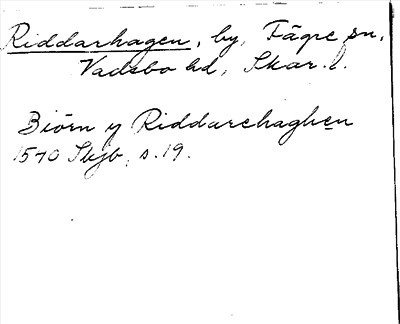 Riddarhagen, by, Fägre sn,
Vadsbo hd, Skar. l.
Biörn y Riddarehaghen
1540 Skjb, s. 19.